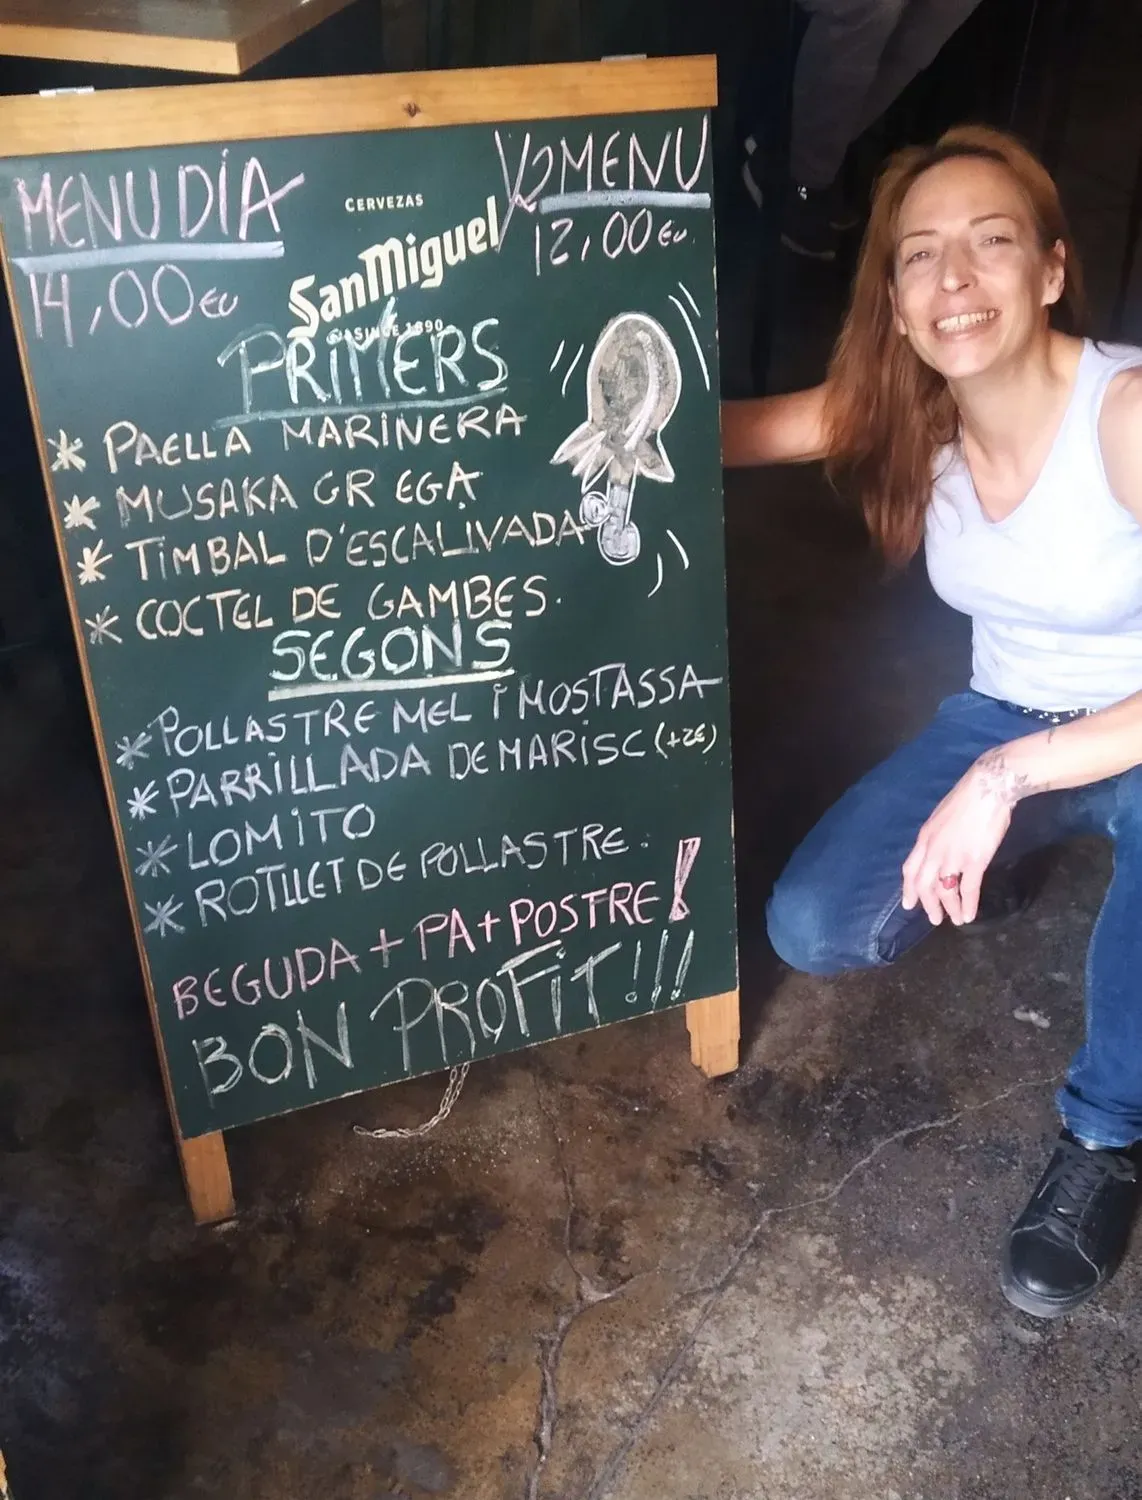 MENU DÍA
14,00 eu
CERVEZAS
San Miguel
SINCE 1890
1/2 MENU
12,00 eu
PRIMERS
* PAELLA MARINERA
* MUSAKA GREGA
* TIMBAL D'ESCALIVADA
* COCTEL DE GAMBES.
SEGONS
* POLLASTRE MEL I MOSTASSA
* PARRILLADA DE MARISC (+2€)
* LOMITO
* ROTLLET DE POLLASTRE.
BEGUDA + PA + POSTRE!
BON PROFIT!!!